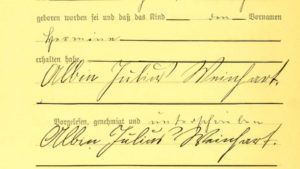 geboren worden sei und daß das Kind den Vornamen
Hermine
erhalten habe.
Albin Julius Weinhart.
Vorgelesen, genehmigt und unterschrieben
Albin Julius Weinhart.